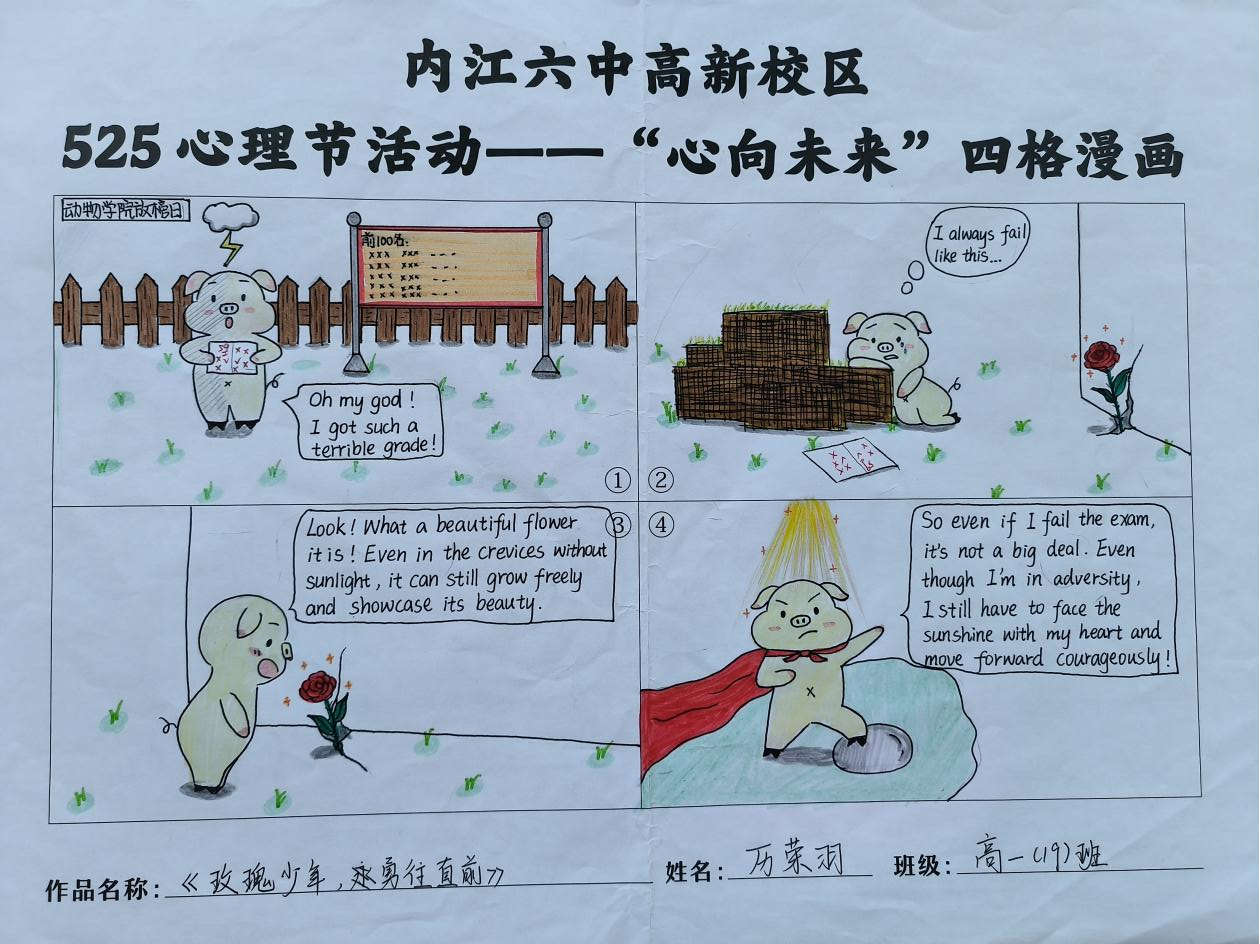 内江六中高新校区
525心理节活动——“心向未来”四格漫画
动物学院放榜日
前100名:
××× ××× ----
××× ××× ----
××× ××× ----
××× ××× ----
Oh my god!
I got such a
terrible grade!
①
I always fail
like this...
②
Look! What a beautiful flower
it is! Even in the crevices without
sunlight, it can still grow freely
and showcase its beauty.
③
④
So even if I fail the exam,
it's not a big deal. Even
though I'm in adversity,
I still have to face the
sunshine with my heart and
move forward courageously!
作品名称:《玫瑰少年,永勇往直前》
姓名:万荣羽 班级:高一(19)班